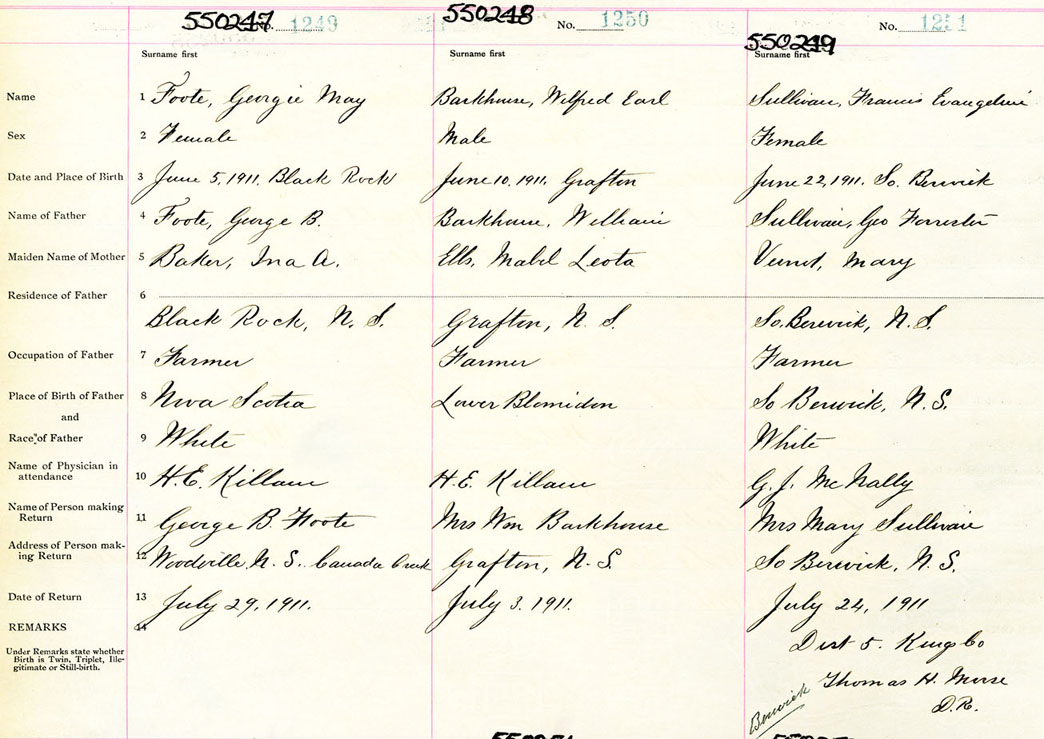 550247 No. 1249
550248 No. 1250
550249 No. 1251
Surname first Surname first Surname first
Name 1 Foote, Georgie May Barkhouse, Wilfred Earl Sullivan, Francis Evangeline
Sex 2 Female Male Female
Date and Place of Birth 3 June 5, 1911, Black Rock June 10, 1911, Grafton June 22, 1911, So. Berwick
Name of Father 4 Foote, George B. Barkhouse, William Sullivan, Geo Forrester
Maiden Name of Mother 5 Baker, Ina A. Ells, Mabel Leota Mary
Residence of Father 6
Black Rock, N. S. Grafton, N. S. So. Berwick, N. S.
Occupation of Father 7 Farmer Farmer Farmer
Place of Birth of Father 8 Nova Scotia Lower Blomidon So Berwick, N. S.
and
Race of Father 9 White White
Name of Physician in
attendance 10 H. E. Killam H. E. Killam G. J. McNally
Name of Person making
Return 11 George B. Foote Mrs Wm Barkhouse Mrs Mary Sullivan
Address of Person mak-
ing Return 12 Woodville, N. S. Canada Creek Grafton, N. S. So Berwick, N. S.
Date of Return 13 July 29, 1911. July 3, 1911. July 24, 1911
REMARKS 14
Under Remarks state whether
Birth is Twin, Triplet, Ille-
gitimate or Still-birth.
Dist 5. Kings Co
Thomas H. Morse
D.R.
Berwick